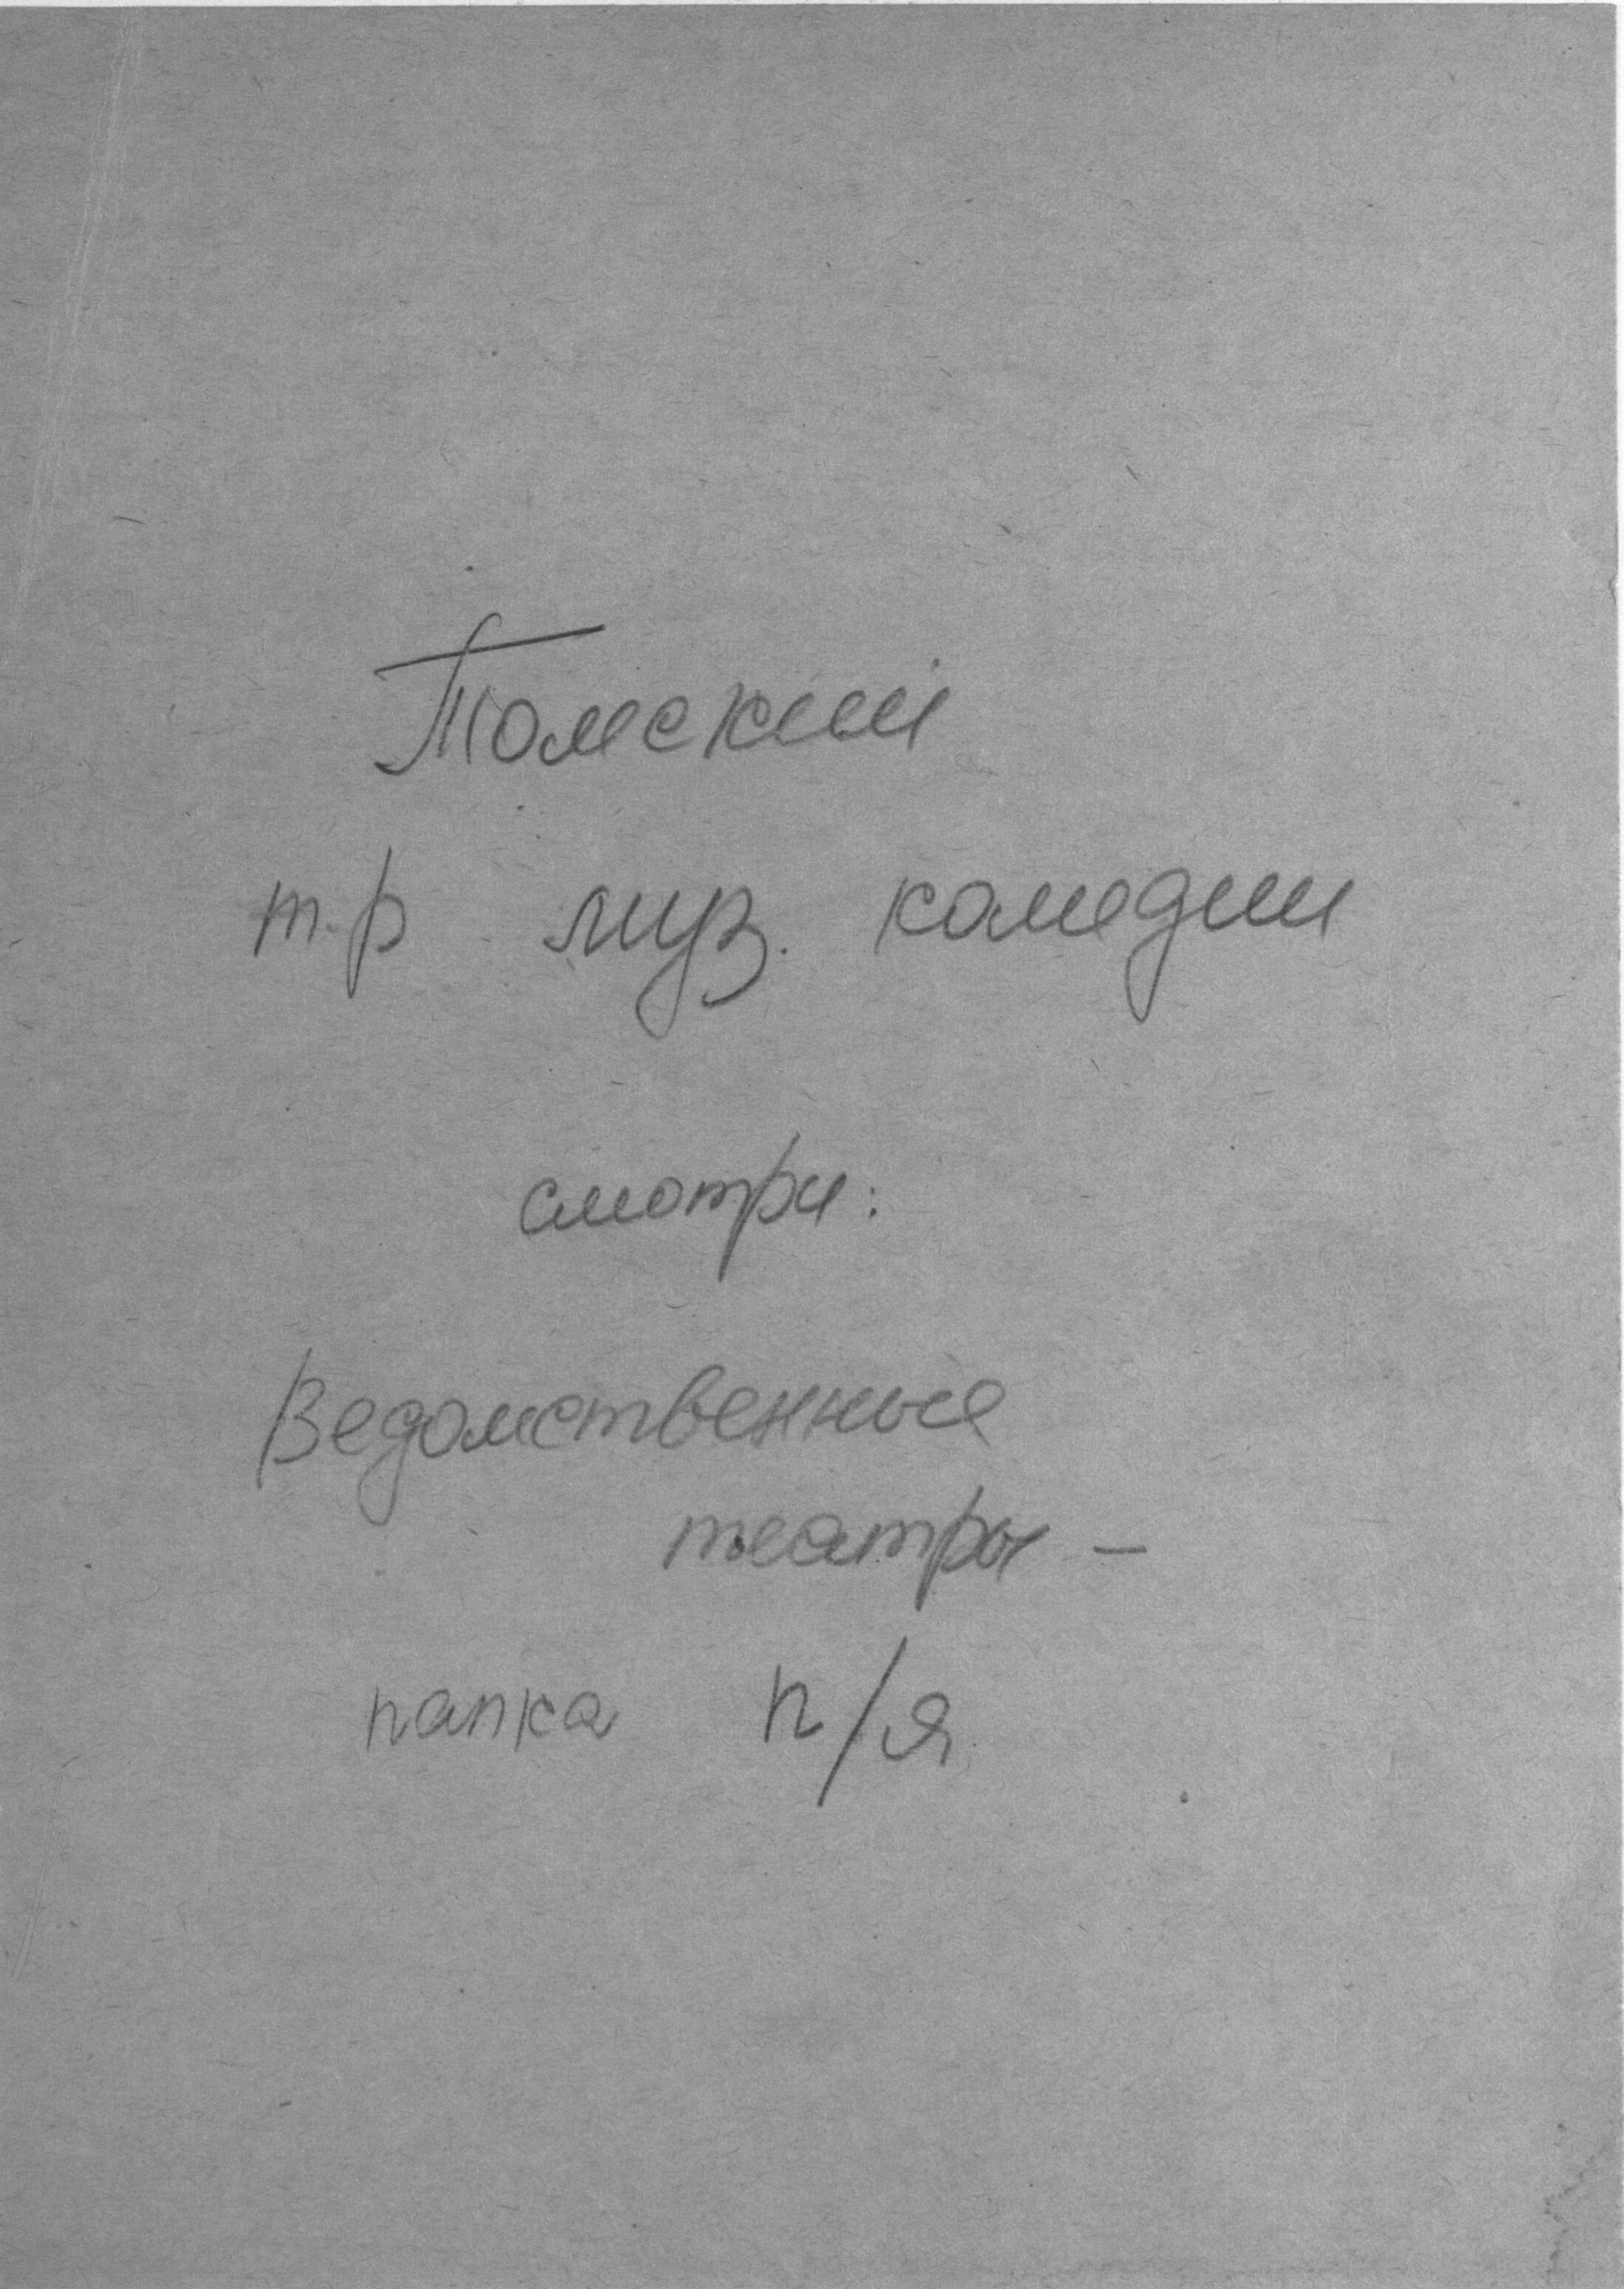 Томский
т-р муз. комедии
смотри:
Ведомственные
театры –
папка п/я